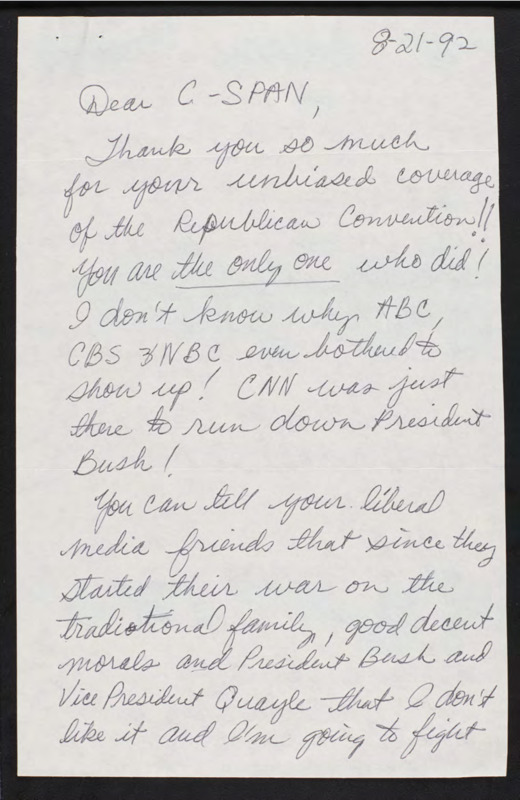 8-21-92
Dear C-SPAN,
Thank you so much
for your unbiased coverage
of the Republican Convention!!
You are the only one who did!
I don't know why ABC,
CBS & NBC even bothered to
show up! CNN was just
there to run down President
Bush!
You can tell your liberal
media friends that since they
started their war on the
tradiotional family, good decent
morals and President Bush and
Vice President Quayle that I don't
like it and I'm going to fight